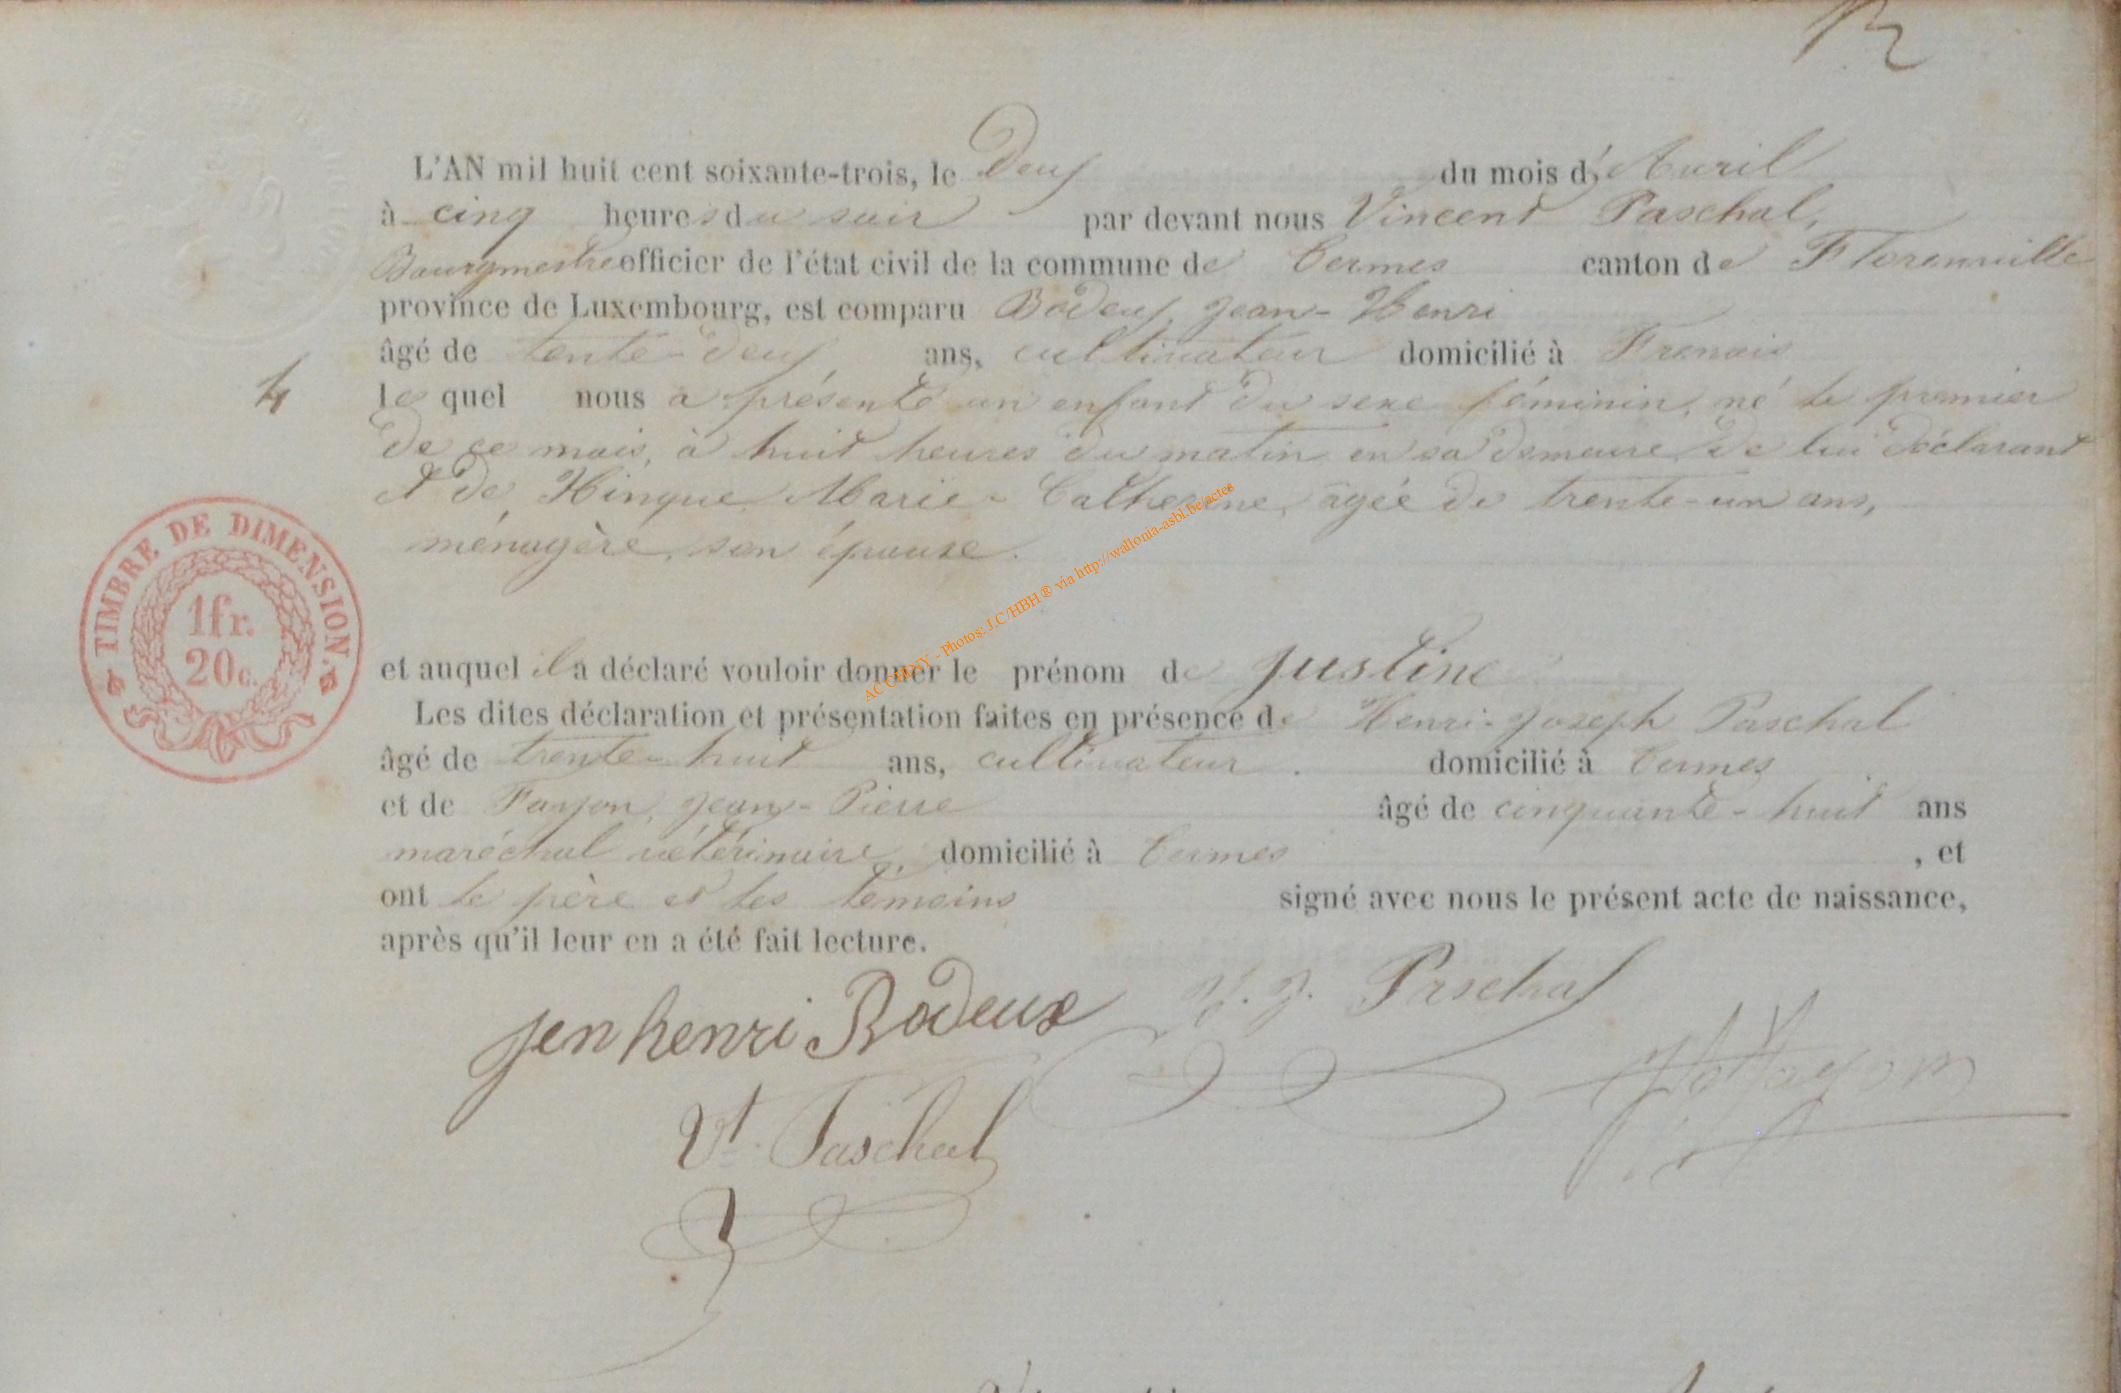 L'AN mil huit cent soixante-trois, le Deux du mois d'Avril
à cinq heures du soir par devant nous Vincent Paschal,
Bourgmestre officier de l'état civil de la commune de Termes canton de Florenville
province de Luxembourg, est comparu Bodeux, Jean-Henri
âgé de tente-deux ans, cultivateur domicilié à Frenois
4
le quel nous a présenté un enfant du sexe féminin, né le premier
de ce mois, à huit heures du matin en sa demeure, de lui déclarant
et de Hinque Marie-Catherine, âgée de trente-un ans,
ménagère, son épouse.
TIMBRE DE DIMENSION.
1fr.
20c.
ACCGENY - Photos: J.C/HBH ® via http://wallonia-asbl.be/actes
et auquel il a déclaré vouloir donner le prénom de Justine
Les dites déclaration et présentation faites en présence de Henri-Joseph Paschal
âgé de trente-huit ans, cultivateur. domicilié à Termes
et de Fayon, Jean-Pierre âgé de cinquante-huit ans
maréchal vétérinaire, domicilié à Termes , et
ont le père et les témoins signé avec nous le présent acte de naissance,
après qu'il leur en a été fait lecture.
jen henri Bodeux H. J. Paschal
Fayon
Vt Paschal